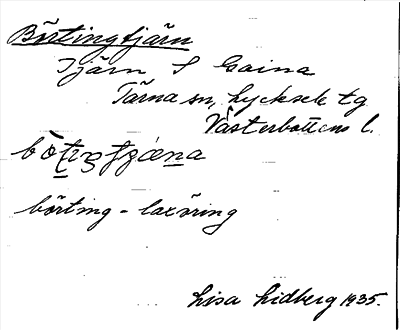 Börtingtjärn
Tjärn, S Gaina
Tärna sn, Lycksele tg
Västerbottens l.
börting - laxöring
Lisa Lidberg 1935.